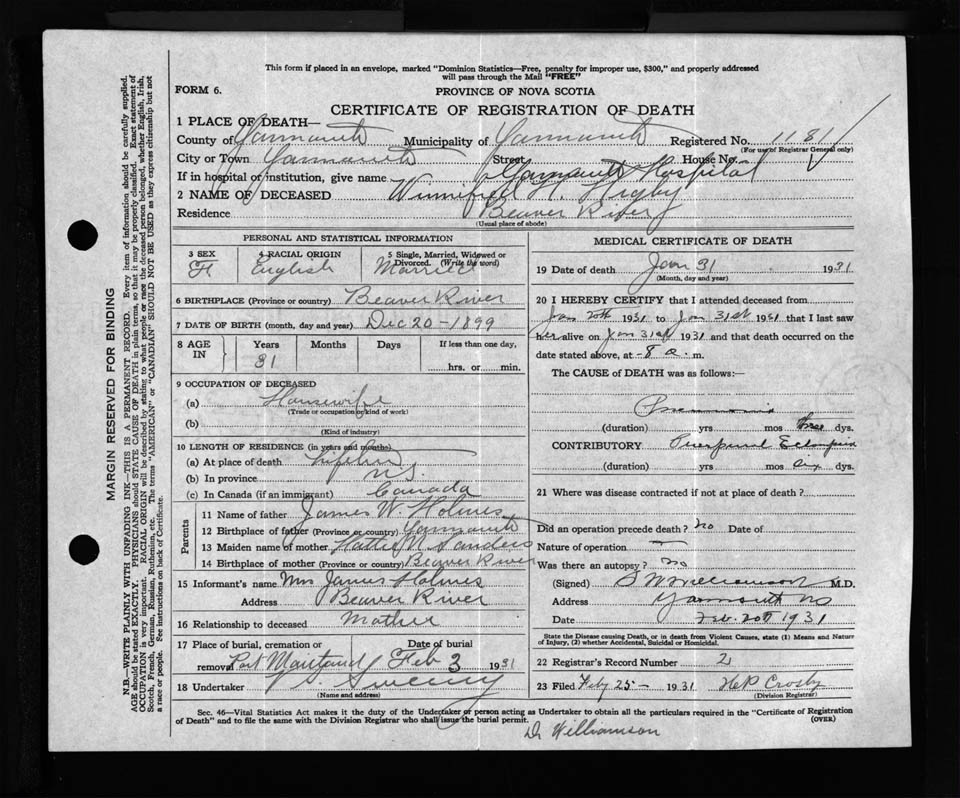 This form if placed in an envelope, marked "Dominion Statistics—Free, penalty for improper use, $300," and properly addressed
will pass through the Mail "FREE"
FORM 6.
PROVINCE OF NOVA SCOTIA
CERTIFICATE OF REGISTRATION OF DEATH
1 PLACE OF DEATH—
County of Yarmouth Municipality of Yarmouth Registered No. 1181
(For use of Registrar General only)
City or Town Yarmouth Street House No.
If in hospital or institution, give name Yarmouth Hospital
2 NAME OF DECEASED Winnifred
Residence Beaver River
(Usual place of abode)
PERSONAL AND STATISTICAL INFORMATION
3 SEX 4 RACIAL ORIGIN 5 Single, Married, Widowed or
Divorced. (Write the word)
F English Married
6 BIRTHPLACE (Province or country) Beaver River
7 DATE OF BIRTH (month, day and year) Dec 20-1899
8 AGE IN Years Months Days If less than one day,
31 hrs. or min.
9 OCCUPATION OF DECEASED
(a) Housewife
(Trade or occupation or kind of work)
(b)
(Kind of industry)
10 LENGTH OF RESIDENCE (in years and months)
(a) At place of death
(b) In province N S
(c) In Canada (if an immigrant) Canada
Parents
11 Name of father James W. Holmes
12 Birthplace of father (Province or country) Yarmouth
13 Maiden name of mother Hattie N Sanders
14 Birthplace of mother (Province or country) Beaver River
15 Informant's name Mrs James Holmes
Address Beaver River
16 Relationship to deceased Mother
17 Place of burial, cremation or Date of burial
removal Port Maitland Feb 3 1931
18 Undertaker Sweeny
(Name and address)
MEDICAL CERTIFICATE OF DEATH
19 Date of death Jan 31 1931
(Month, day and year)
20 I HEREBY CERTIFY that I attended deceased from
Jan 20th 1931 to Jan 31st 1931 that I last saw
her alive on Jan 31st 1931 and that death occurred on
date stated above, at 8 a. m.
The CAUSE of DEATH was as follows:—
Pneumonia
(duration) yrs mos three dys.
CONTRIBUTORY Puerperal Eclampsia
(duration) yrs mos six dys.
21 Where was disease contracted if not at place of death?
Did an operation precede death? no Date of
Nature of operation —
Was there an autopsy? no
(Signed) M.D.
Address Yarmouth NS
Date Feb. 20th 1931
State the Disease causing Death, or in death from Violent Causes, state (1) Means and Nature
of Injury, (2) whether Accidental, Suicidal or Homicidal.
22 Registrar's Record Number 2
23 Filed Feby 25— 1931 Crosby
(Division Registrar)
Sec. 46—Vital Statistics Act makes it the duty of the Undertaker or person acting as Undertaker to obtain all the particulars required in the "Certificate of Registration
of Death" and to file the same with the Division Registrar who shall issue the burial permit. (OVER)
Dr Williamson
MARGIN RESERVED FOR BINDING
N.B.—WRITE PLAINLY WITH UNFADING INK—THIS IS A PERMANENT RECORD. Every item of information should be carefully supplied.
AGE should be stated EXACTLY. PHYSICIANS should STATE CAUSE OF DEATH in plain terms, so that it may be properly classified. Exact statement of
OCCUPATION is very important. RACIAL ORIGIN will be described by stating to what people or race the deceased person belonged, whether English, Irish,
Scotch, French, German, Russian, Ruthenian, etc. The terms "AMERICAN" or "CANADIAN" SHOULD NOT BE USED as they express citizenship but not
a race or people. See instructions on back of Certificate.